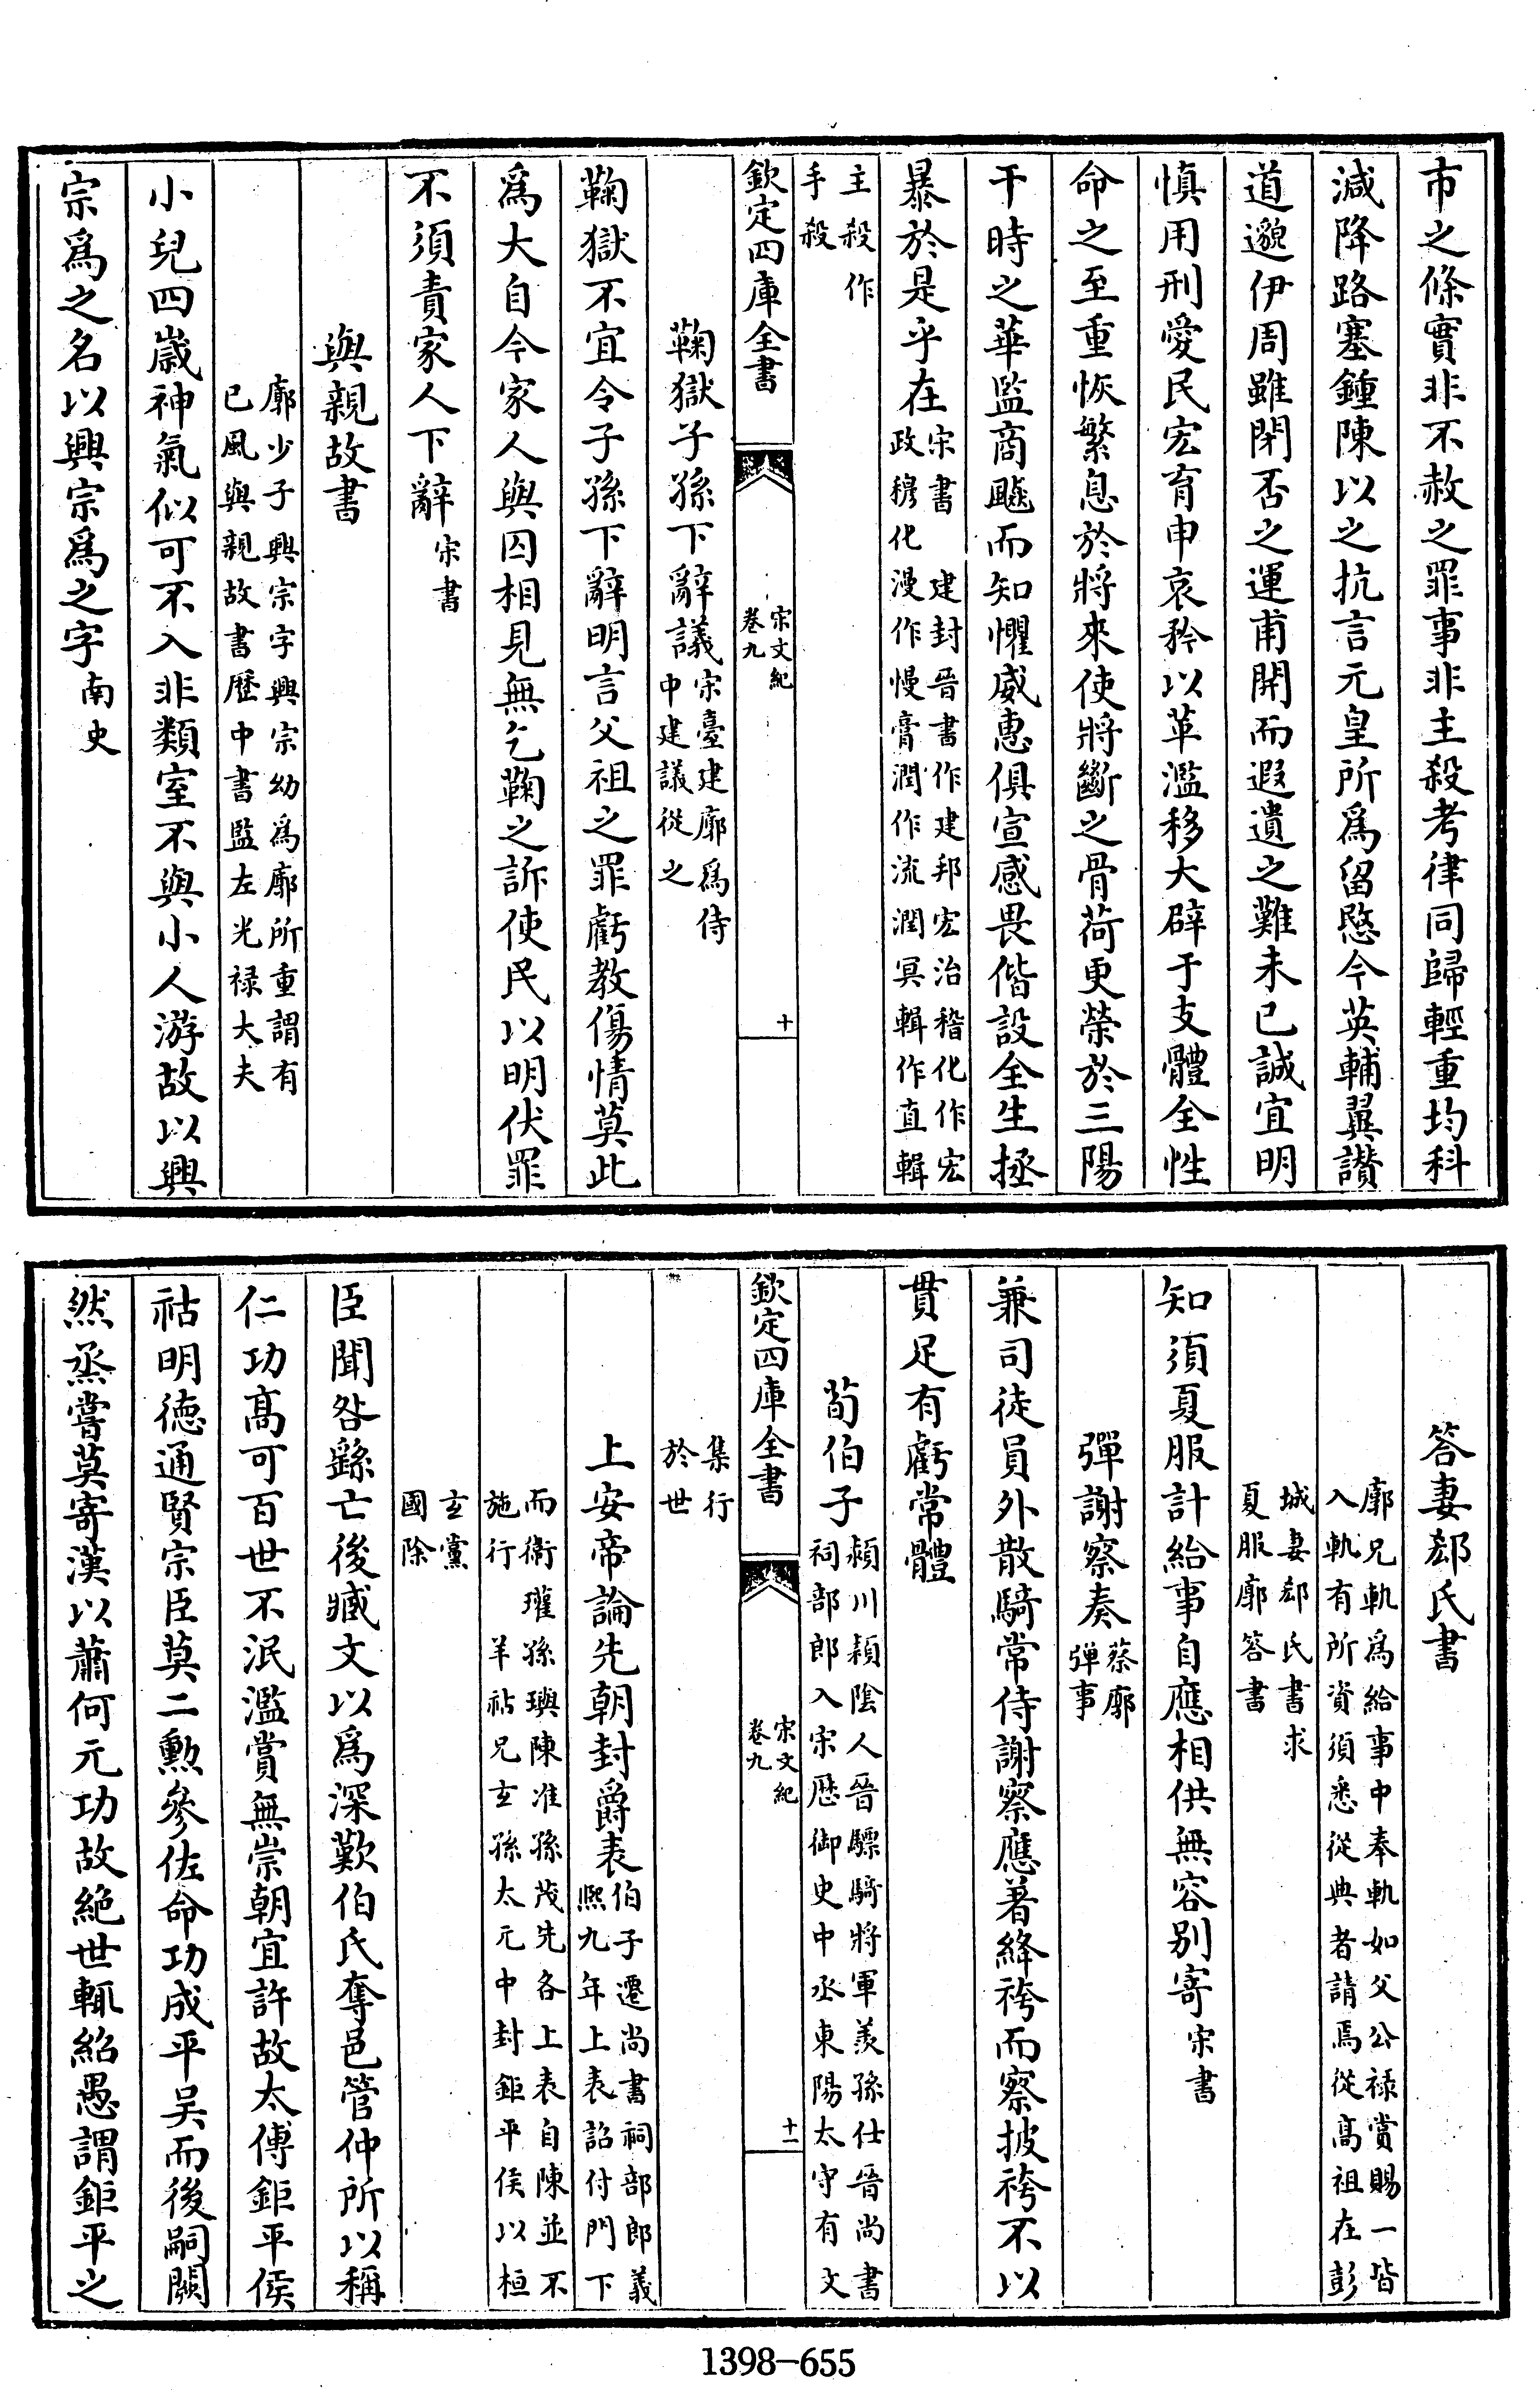 市之條實非不赦之罪事非主殺考律同歸輕重均科
減降路塞鍾陳以之抗言元皇所爲留愍今英輔翼讚
道邈伊周雖閉否之運甫開而遐遺之難未已誠宜明
慎用刑愛民宏育申哀矜以革濫移大辟于支體全性
命之至重恢繁息於將來使將斷之骨荷更榮於三陽
干時之華監商飈而知懼威惠俱宣感畏偕設全生拯
暴於是乎在宋書建封晉書作建邦宏治稽化作宏
政穆化漫作慢膏潤作流潤冥輯作直輯
主殺作
手殺
欽定四庫全書
宋文紀
卷九
十
鞠獄子孫下辭議宋臺建廓爲侍
中建議從之
鞠獄不宜令子孫下辭明言父祖之罪虧教傷情莫此
爲大自今家人與囚相見無乞鞠之訴使民以明伏罪
不須責家人下辭宋書
與親故書
廓少子興宗字興宗幼爲廓所重謂有
已風與親故書歴中書監左光禄大夫
小兒四歳神氣似可不入非類室不與小人游故以興
宗爲之名以興宗爲之字南史
答妻郄氏書
廓兄軌爲給事中奉軌如父公禄賞賜一皆
入軌有所資須悉從典者請焉從髙祖在彭
城妻郄氏書求
夏服廓答書
知須夏服計給事自應相供無容别寄宋書
彈謝察奏蔡廓
彈事
兼司徒員外散騎常侍謝察應著絳袴而察披袴不以
貫足有虧常體
荀伯子潁川潁陰人晉驃騎將軍羨孫仕晉尚書
祠部郎入宋歴御史中丞東陽太守有文
欽定四庫全書
宋文紀
卷九
十一
集行
於世
上安帝論先朝封爵表伯子遷尚書祠部郎義
熙九年上表詔付門下
而衛瓘孫璵陳准孫茂先各上表自陳並不
施行羊祜兄玄孫太元中封鉅平侯以桓
玄黨
國除
臣聞咎繇亡後臧文以爲深歎伯氏奪邑管仲所以稱
仁功髙可百世不泯濫賞無崇朝宜許故太傅鉅平侯
祜明徳通賢宗臣莫二勲參佐命功成平吳而後嗣闕
然烝嘗莫寄漢以蕭何元功故絶世輒紹愚謂鉅平之
1398-655